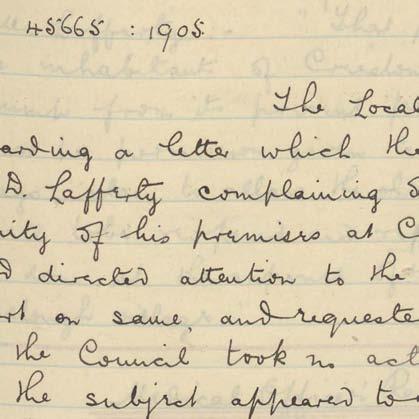 45665 : 1905.
The Local
arding a letter which the
D. Lafferty complaining
ity of his premises at C
d directed attention to the
rt on same, and requeste
the Council took no act
the subject appeared to